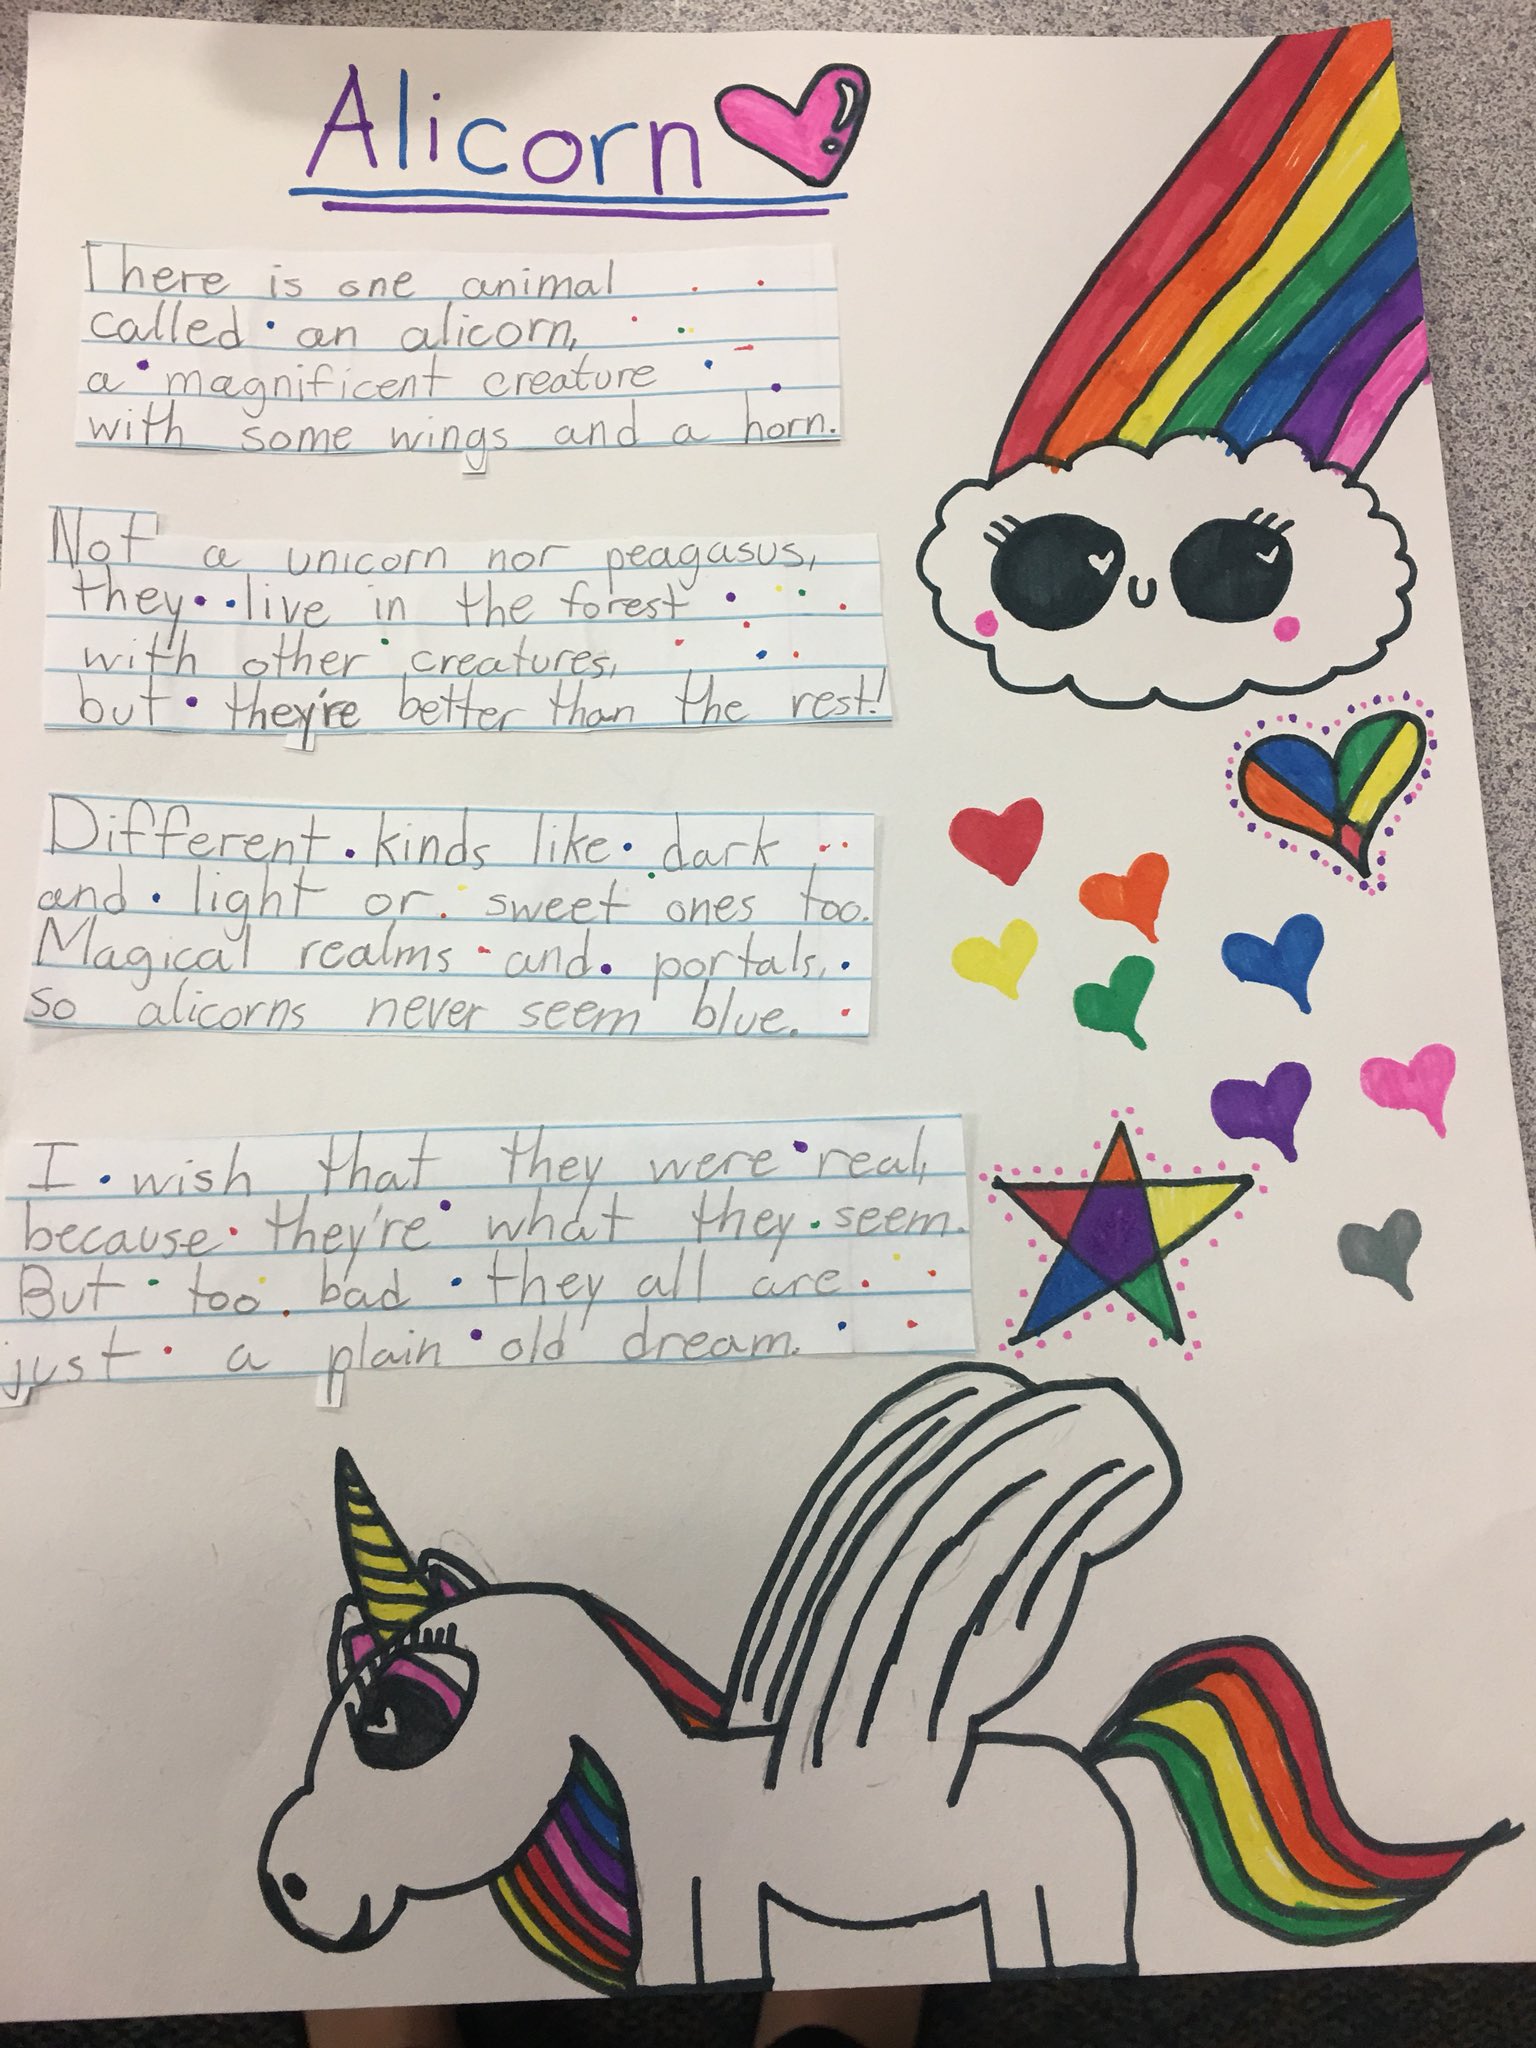 Alicorn
There is one animal
called an alicorn,
a magnificent creature
with some wings and a horn.
Not a unicorn nor peagasus,
they live in the forest
with other creatures,
but they're better than the rest!
Different kinds like dark
and light or sweet ones too.
Magical realms and portals,
so alicorns never seem blue.
I wish that they were real,
because they're what they seem.
But too bad they all are
just a plain old dream.